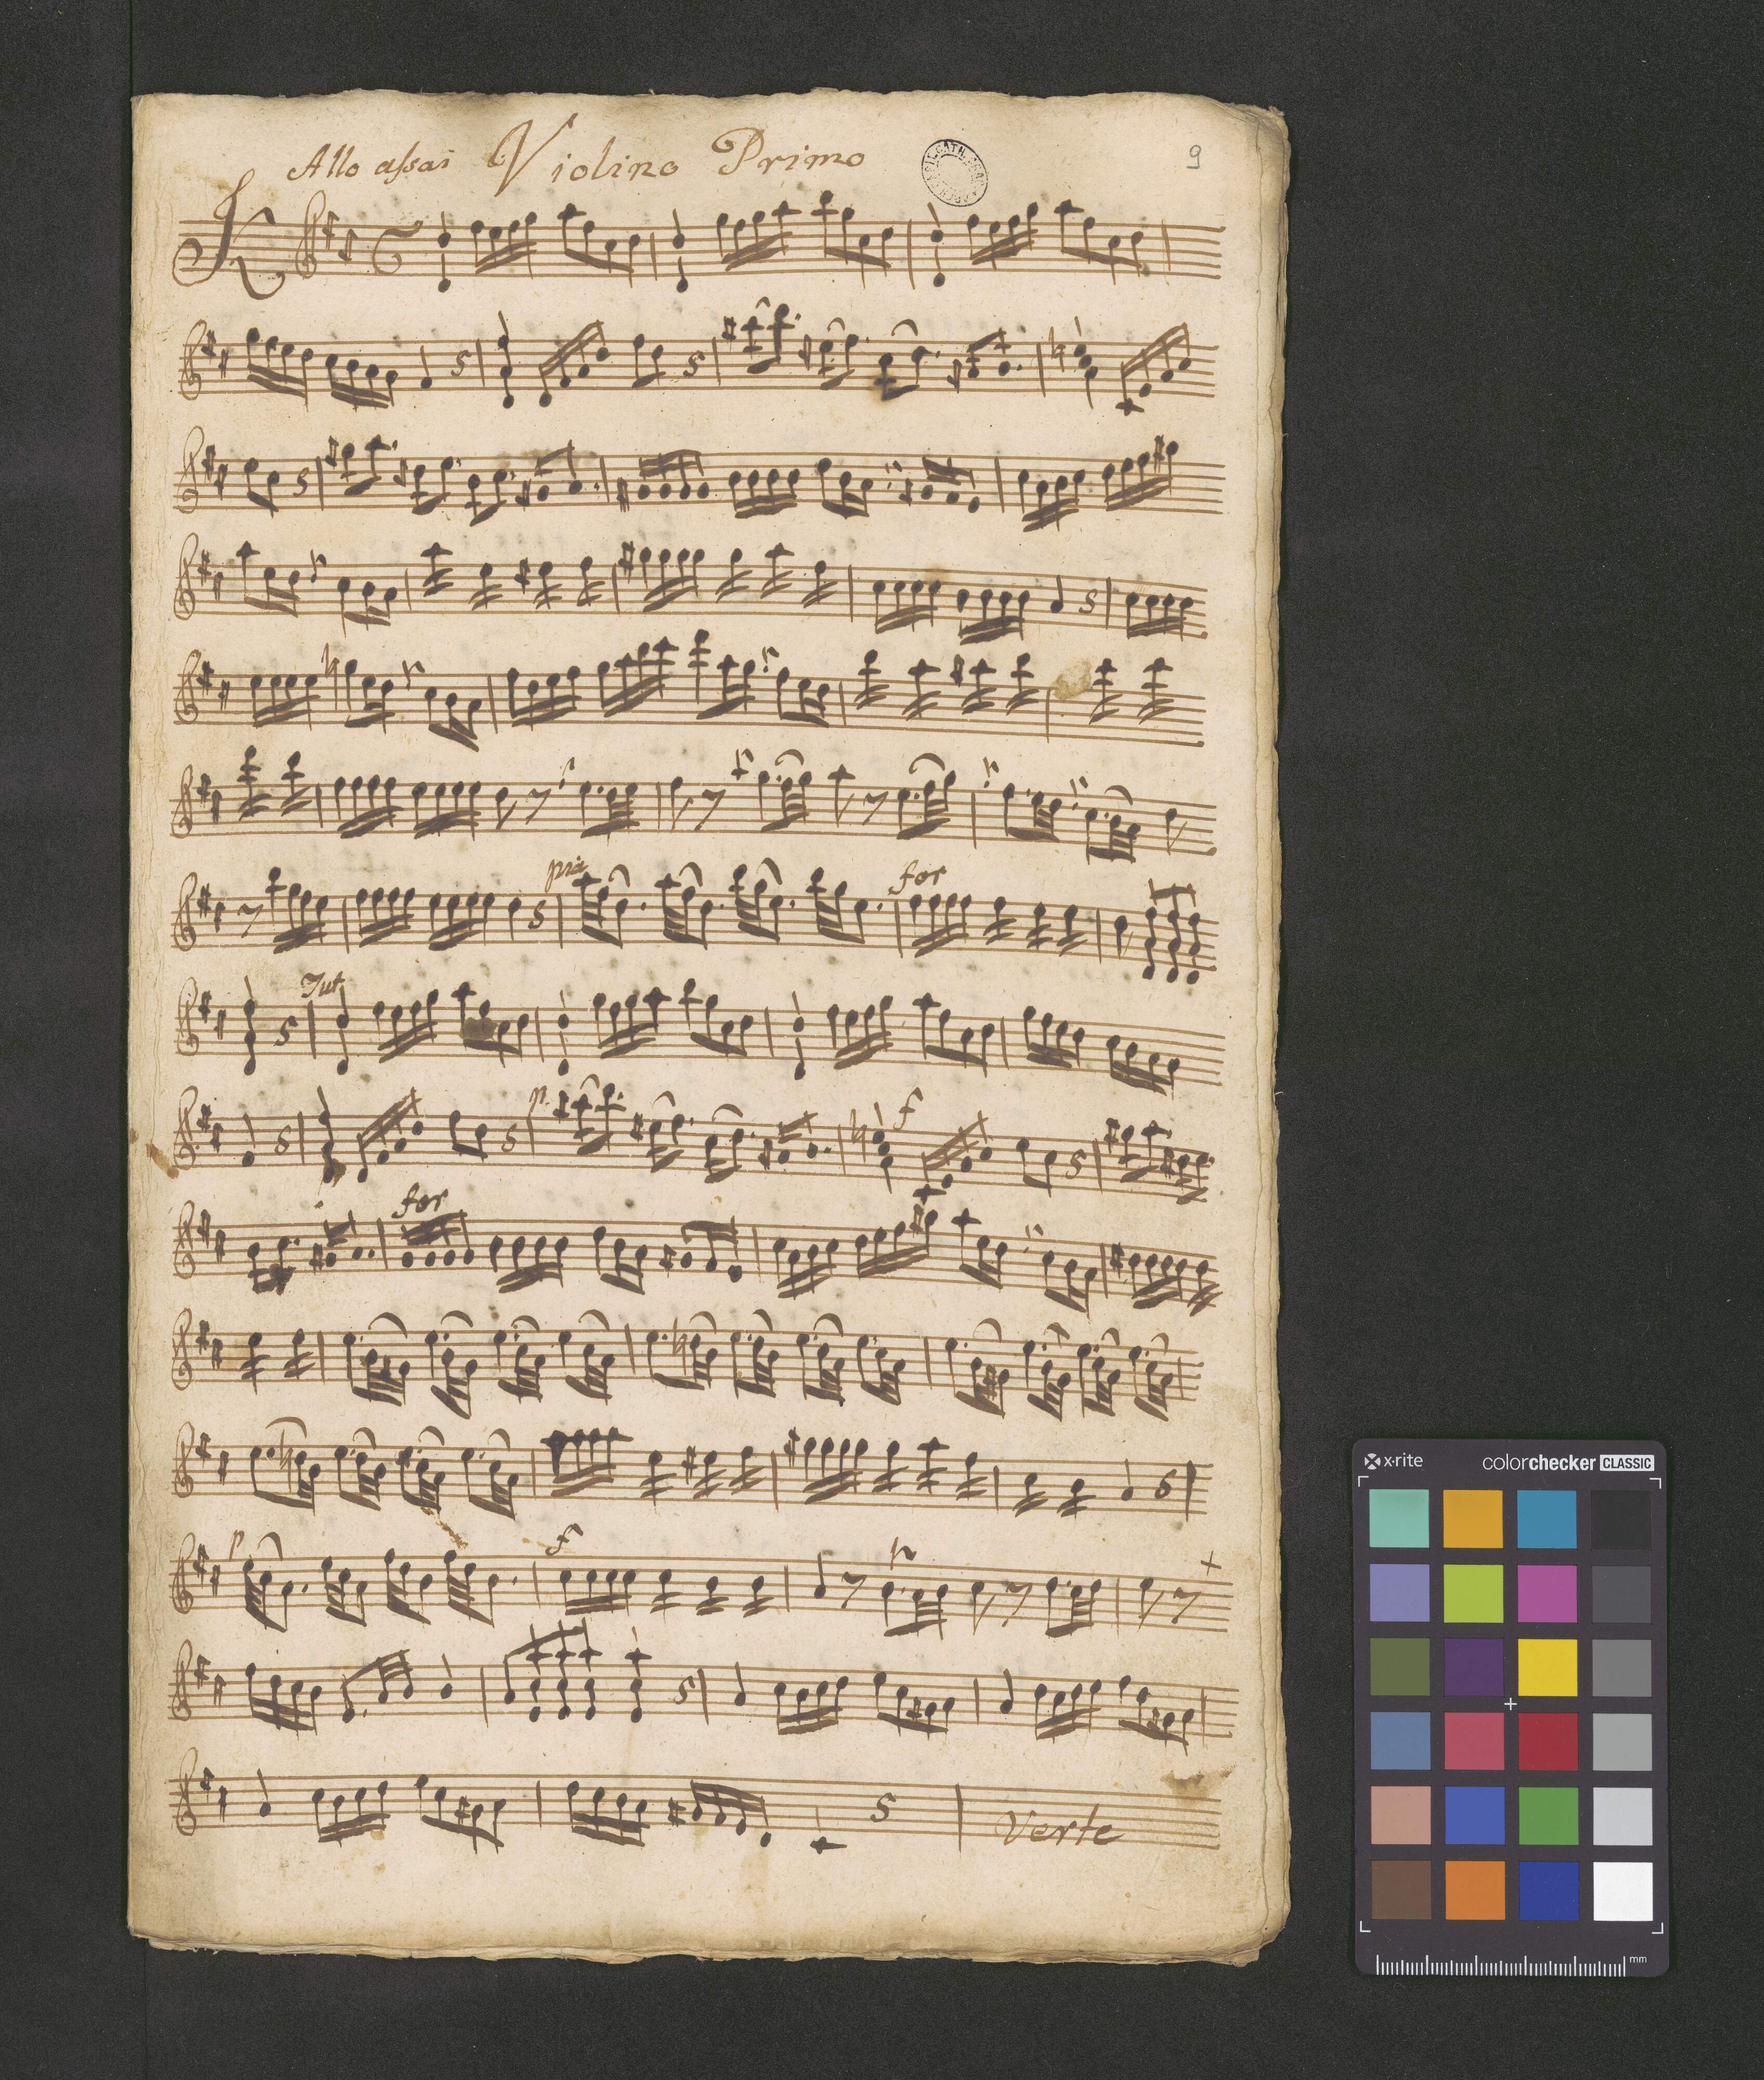 Allo assai Violino Primo
9
K
pia
for
Tut
p.
f
for
p
f
Verte
x·rite
colorchecker CLASSIC
mm